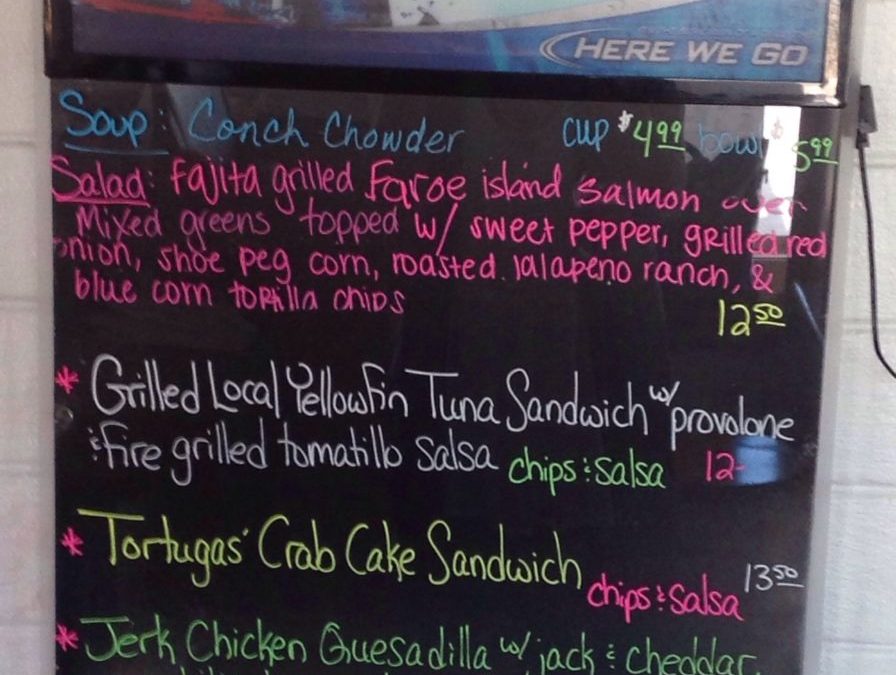 HERE WE GO
Soup: Conch Chowder cup $4.99 bowl $5.99
Salad: Fajita grilled Faroe island salmon over
Mixed greens topped w/ sweet pepper, grilled red
onion, shoe peg corn, roasted jalapeno ranch, &
blue corn tortilla chips
12 50
* Grilled Local Yellowfin Tuna Sandwich w/ provolone
& fire grilled tomatillo salsa chips & salsa 12-
* Tortugas' Crab Cake Sandwich
chips & salsa 13 50
* Jerk Chicken Quesadilla w/ jack & cheddar,